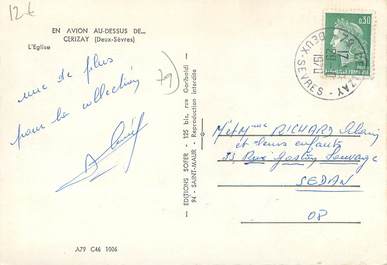 12 €
EN AVION AU-DESSUS DE...
CERIZAY (Deux-Sèvres)
L'Eglise
une de plus
pour la collection
79
EDITIONS SOFER - 125 bis, rue Garibaldi
94 - SAINT-MAUR - Reproduction interdite
0,30
CERIZAY
DEUX-SEVRES
M et Mme RICHARD
et leurs enfants
Rue Gaston Sauvage
SEDAN
08
A79 C46 1006